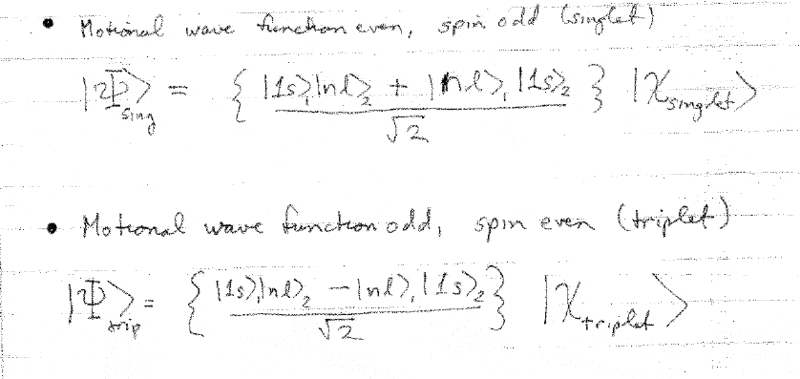 • Motional wave function even, spin odd (singlet)
|Ψ⟩sing = { |1s⟩₁|nl⟩₂ + |nl⟩₁|1s⟩₂ / √2 } |χsinglet⟩
• Motional wave function odd, spin even (triplet)
|Ψ⟩trip = { |1s⟩₁|nl⟩₂ − |nl⟩₁|1s⟩₂ / √2 } |χtriplet⟩